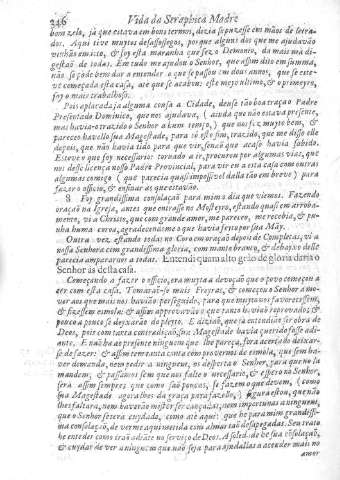 346 Vida da Seraphica Madre
bom zelo, já que estava em bons termos, dezia se puzesse em mãos de letra-
dos. Aqui tive muytos desassossegos, porque alguns dos que me ajudavão
vinhão em isto, & foy esta maranha que fez o Demonio, da mais má di-
gestão de todas. Em tudo me ajudou o Senhor, que assim dito em summa,
não se póde bem dar a entender o que se passou em dous annos, que se este-
ve começada esta casa, até que se acabou: este meyo ultimo, & o primeyro,
foy o mais trabalhoso.
Pois aplacada já alguma cousa a Cidade, deu-se tão boa traça o Padre
Presentado Dominico, que nos ajudava, ( ainda que não estava presente,
mas havia-o trazido o Senhor a hum tempo,) que nos fez muyto bem, &
pareceo havello sua Magestade, para só este fim, trazido, que me disse elle
depois, que não havia tido para que vir, senão que acaso havia sabido.
Esteve o que foy necessario: tornado a ir, procurou por algumas vias, que
nos desse licença nosso Padre Provincial, para vir eu a esta casa com outras
algumas comigo ( que parecia quasi impossivel dalla tão em breve ) para
fazer o officio, & ensinar ás que estavão.
8 Foy grandissima consolação para mim o dia que viemos. Fazendo
oração na Igreja, antes que entrasse no Mosteyro, estando quasi em arroba-
mento, vi a Christo, que com grande amor, me pareceo, me recebia, & pu-
nha huma coroa, agradecendome o que havia feyto por sua Mãy.
Outra vez estando todas no Coro em oração depois de Completas, vi a
nossa Senhora com grandissima gloria, com manto branco, & debayxo delle
parecia ampararnos a todas. Entendi quam alto grão de gloria daria o
Senhor ás desta casa.
Começando a fazer o officio, era muyta a devação que o povo começou a
ter com esta casa. Tomarão-se mais Freyras, & começou o Senhor a mo-
ver aos que mais nos havião perseguido, para que muyto nos favorecessem,
& fizessem esmola: & assim approvavão o que tanto havião reprovado; &
pouco a pouco se deyxarão do pleyto. E dizião, que já entendião ser obra de
Deos, pois com tanta contradição, sua Magestade havia querido fosse adi-
ante. E não ha ao presente ninguem que lhe pareça, fora acertado deixar-
se de fazer: & assim tem tanta conta com provernos de esmola, que sem ha-
ver demanda, nem pedir a ninguem, os desperta o Senhor, para que no la
mandem; & passamos sem que nos falte o necessario, & espero no Senhor,
será assim sempre; que como são poucas, se fazem o que devem, ( como
sua Magestade agora lhes dá graça para fazello, ) segura estou, que não
lhes faltara, nem haverão mister ser cançadas, nem importunas a ninguem,
que o Senhor se terá cuydado, como até aqui: que he para mim grandissi-
ma consolação, de verme aqui metida com almas tão desapegadas. Seu trato
he entender como irão adiante no serviço de Deos. A soledade he sua consolação,
& cuydar de ver a ninguem que não seja para ajudallas a acender mais no
amor